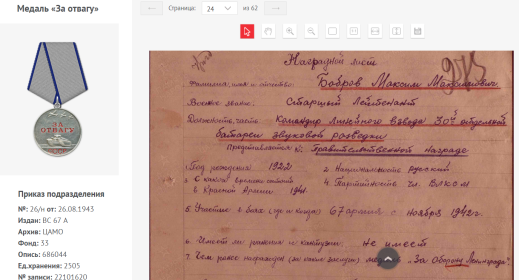 Медаль «За отвагу»
Страница: 24 из 62
ЗА
ОТВАГУ
СССР
Приказ подразделения
№: 26/н от: 26.08.1943
Издан: ВС 67 А
Архив: ЦАМО
Фонд: 33
Опись: 686044
Ед.хранения: 2505
№ записи: 22101620
Наградной лист
Фамилия, имя и отчество Бобров Максим Максимович
Военное звание Старший Лейтенант
Должность, часть Командир Линейного взвода 30й отдельной
батареи звуковой разведки
Представляется к Правительственной награде
1. Год рождения 1922 2. Национальность русский
3. С какого времени состоит
в Красной Армии 1941 4. Партийность чл. ВЛКСМ
5. Участие в боях (где и когда) 67 армия с ноября 1942 г.
6. Имеет ли ранения и контузии Не имеет
7. Чем ранее награжден (за какие заслуги) медаль "За Оборону Ленинграда"